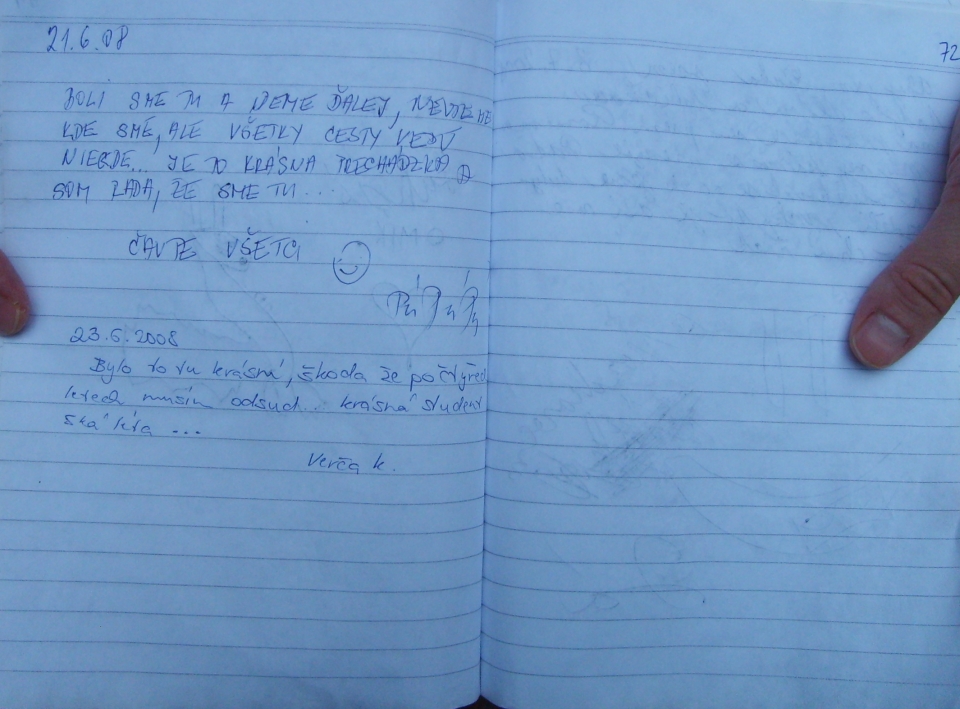 21.6.08
72
BOLI SME TU A IDEME ĎALEJ, NEVIEME
KDE SME, ALE VŠETKY CESTY VEDÚ
NIEKDE... JE TO KRÁSNA PRECHÁDZKA A
SOM RADA, ŽE SME TU...
ČAVTE VŠETCI
23.6.2008
Bylo to tu krásný, škoda že po čtyřech
letech musím odsud... krásná student
ská léta ...
Verča K.